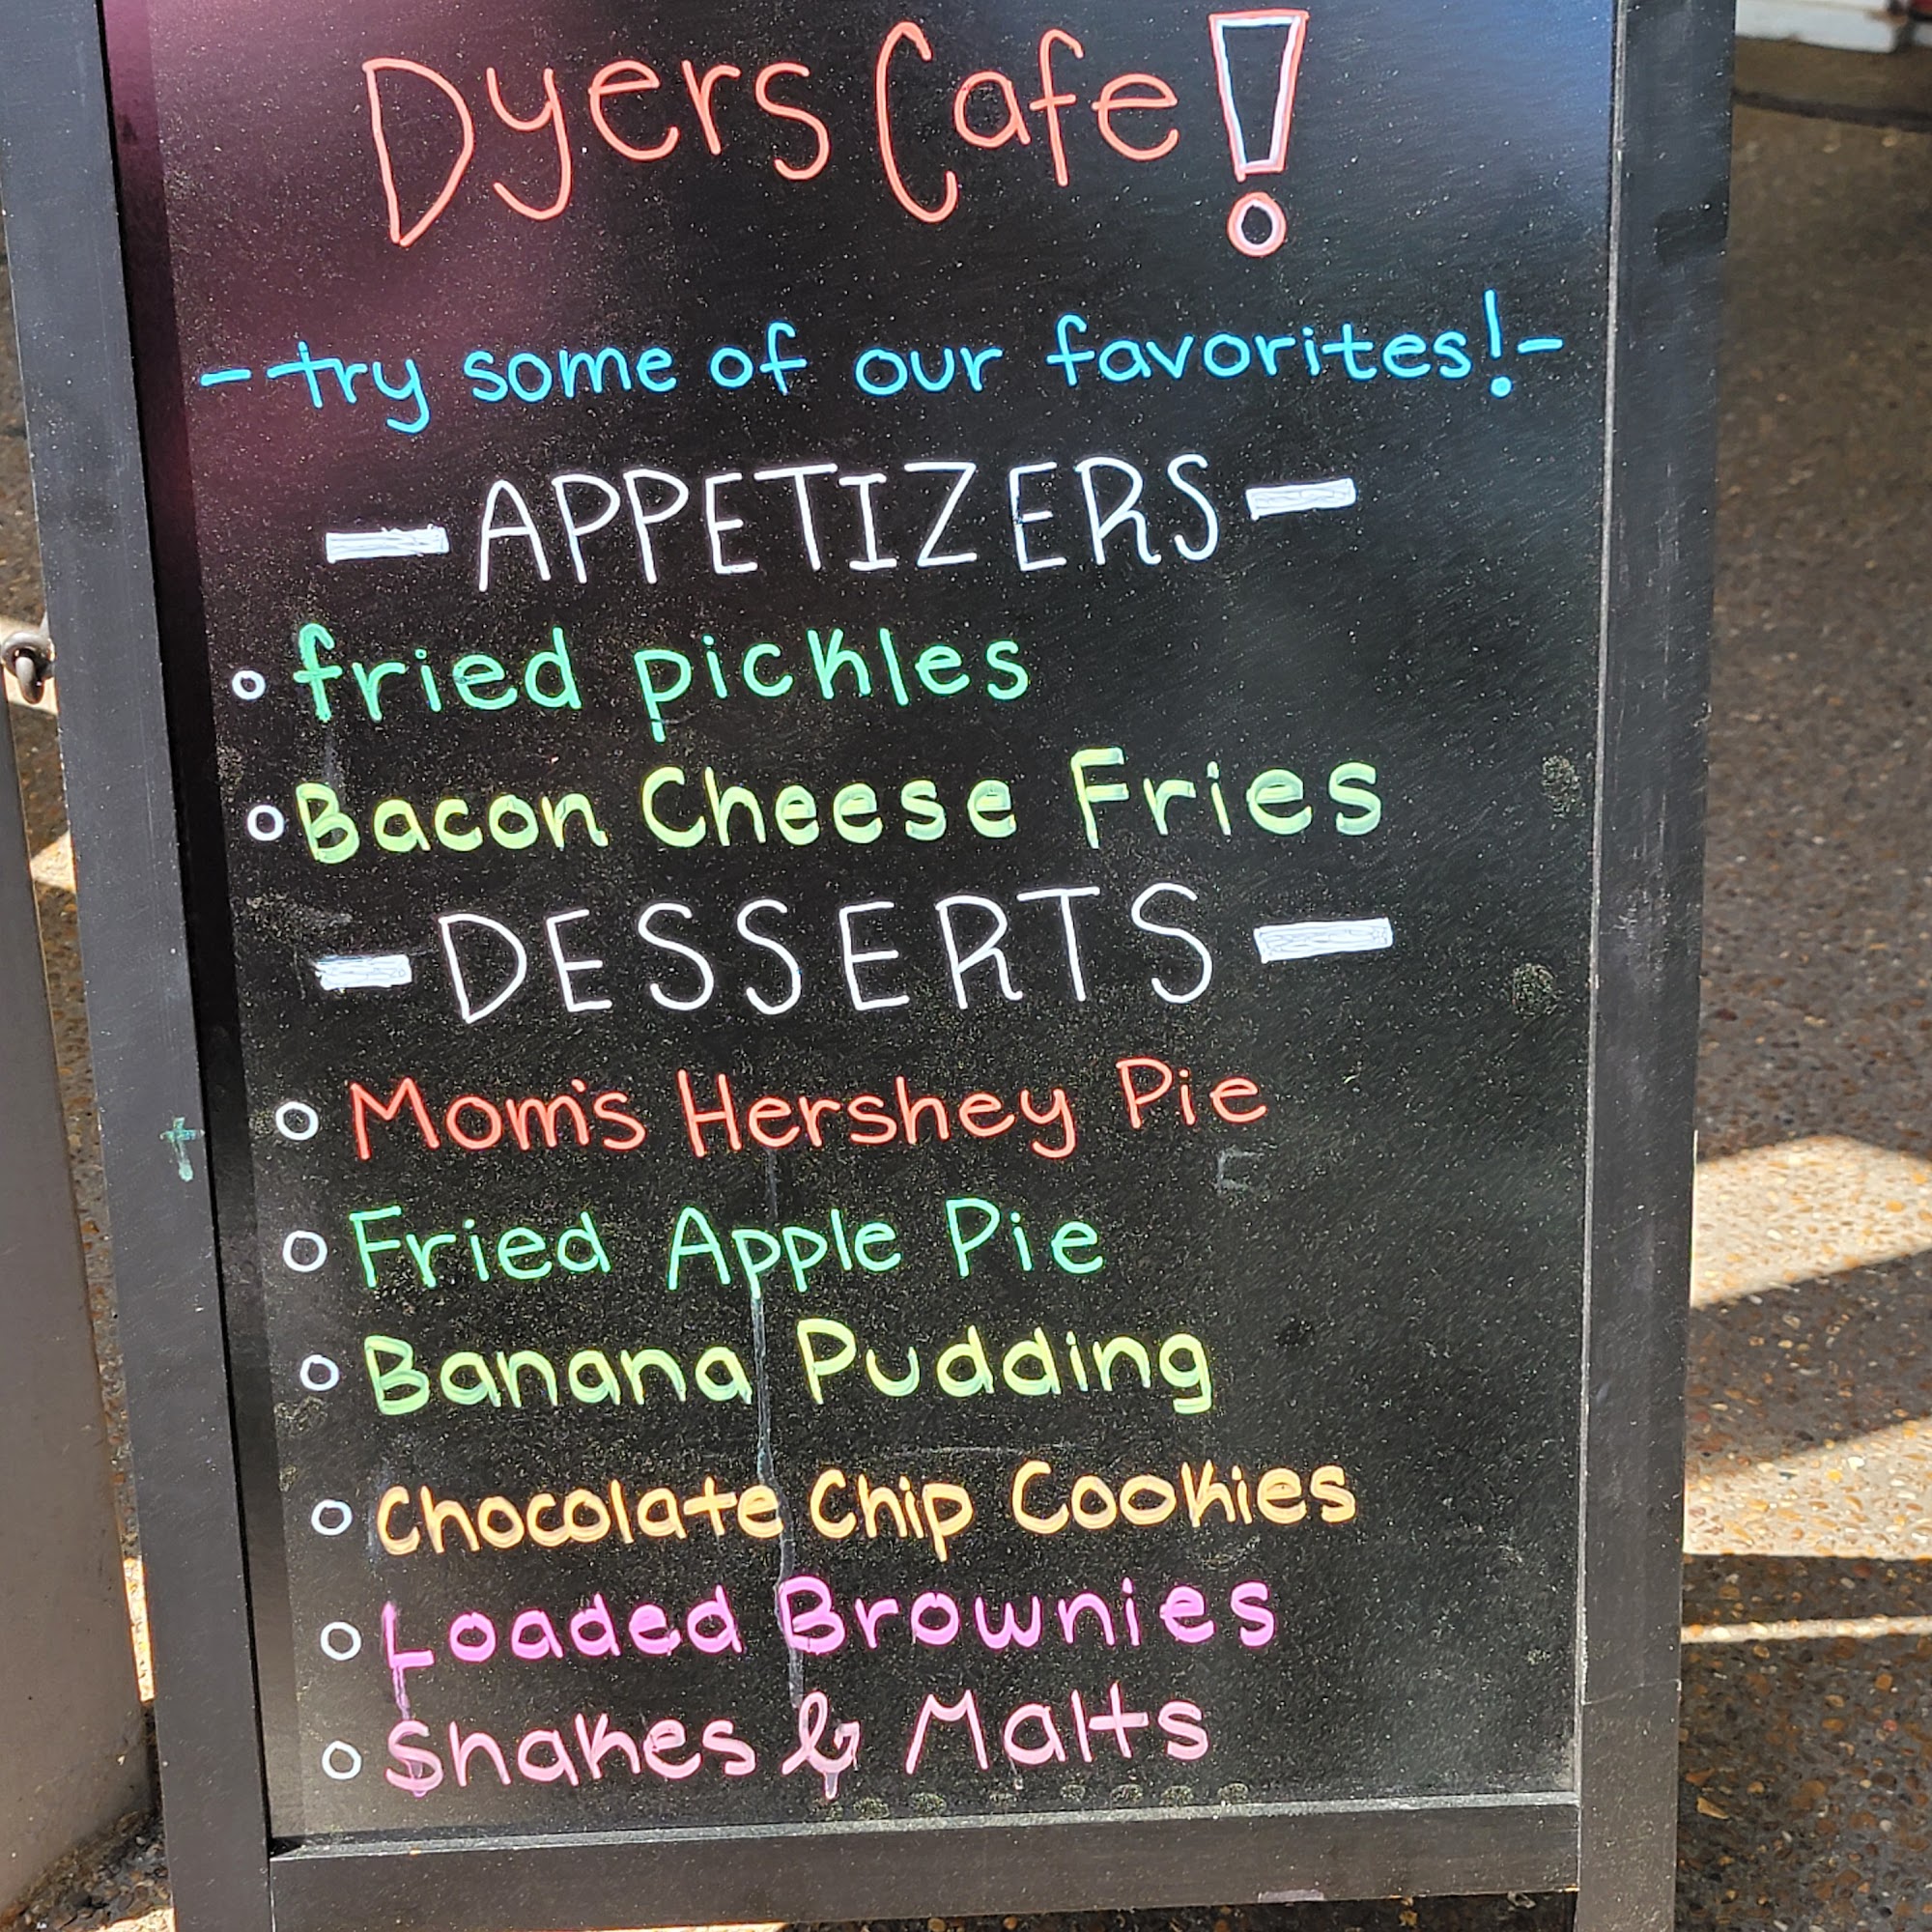 Dyers Cafe!
-try some of our favorites!-
- APPETIZERS -
o fried pickles
o Bacon Cheese Fries
- DESSERTS -
o Mom's Hershey Pie
o Fried Apple Pie
o Banana Pudding
o Chocolate Chip Cookies
o Loaded Brownies
o Shakes & Malts